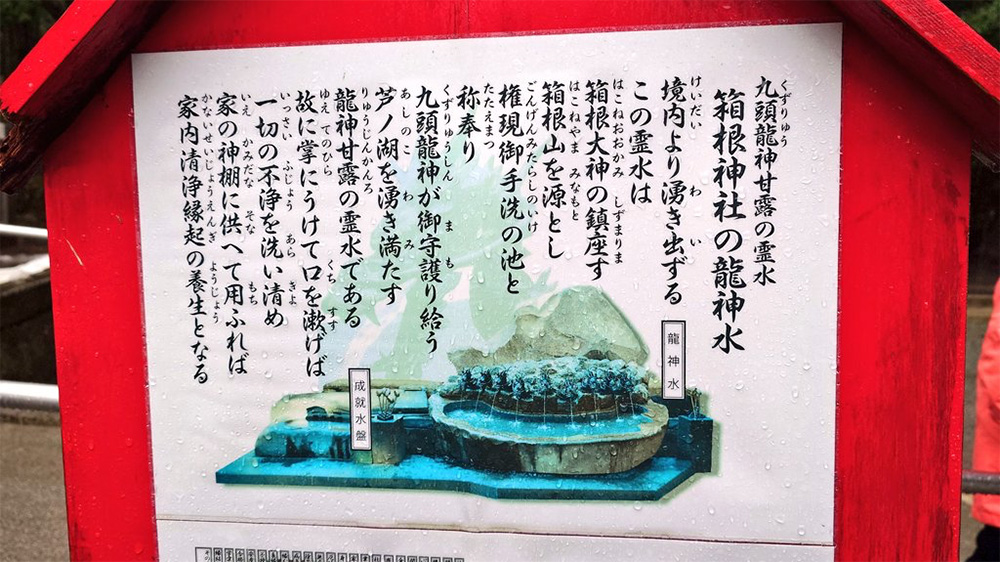 九頭龍神甘露の霊水
箱根神社の龍神水
境内より湧き出ずる
この霊水は
箱根大神の鎮座す
箱根山を源とし
権現御手洗の池と
称奉り
九頭龍神が御守護り給う
芦ノ湖を湧き満たす
龍神甘露の霊水である
故に掌にうけて口を漱げば
一切の不浄を洗い清め
家の神棚に供へて用ふれば
家内清浄縁起の養生となる
龍神水
成就水盤